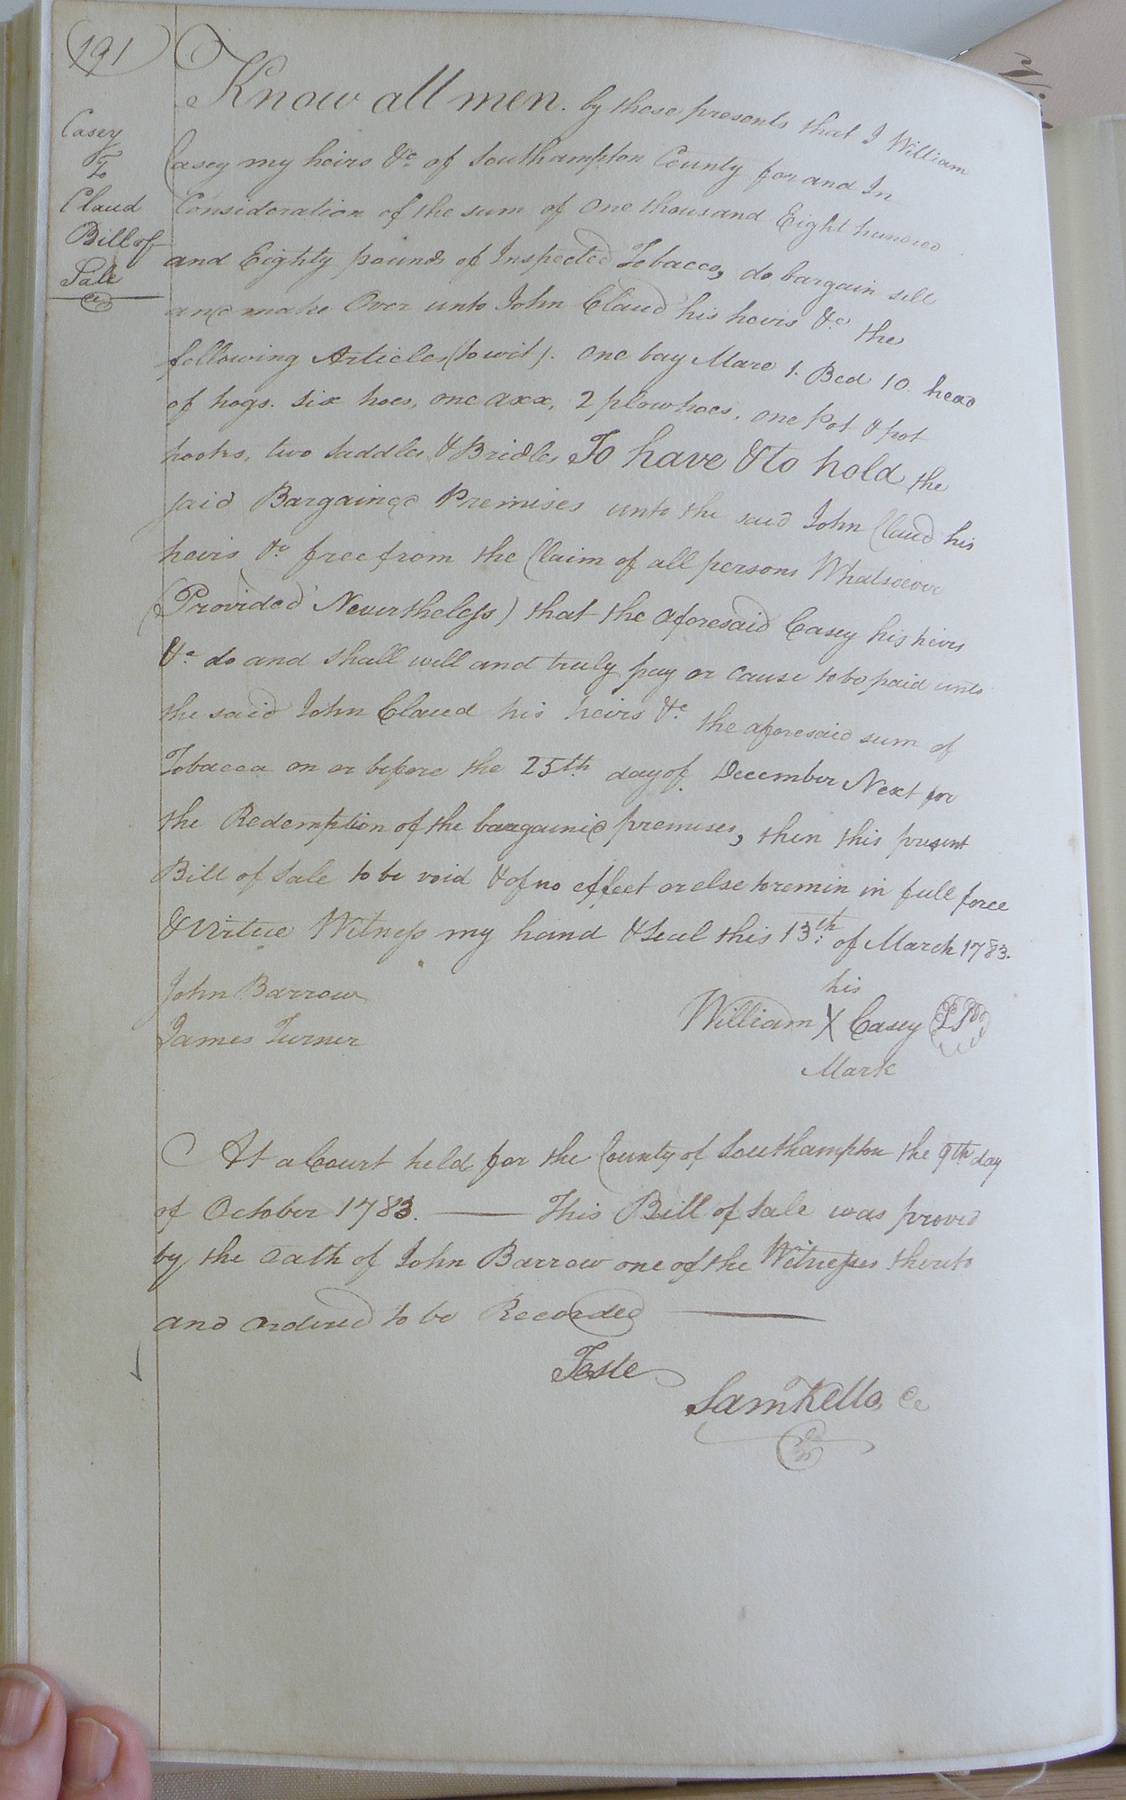 191
Casey
To
Claud
Bill of
Sale
Know all men. by these presents that I William
Casey my heirs &c of Southampton County for and In
Consideration of the sum of One thousand Eight hundred
and Eighty pounds of Inspected Tobacco, do bargain sell
and make Over unto John Claud his heirs &c the
following Articles (to wit). one bay Mare 1. Bed 10 head
of hogs. six hoes, one axx, 2 plow hoes, one Pot & pot
hooks, two Saddles & Bridles To have & to hold the
said Bargained Premises unto the said John Claud his
heirs &c free from the Claim of all persons Whatsoever
(Provided Nevertheless) that the aforesaid Casey his heirs
&c do and shall well and truly pay or cause to be paid unto
the said John Claud his heirs &c the aforesaid sum of
Tobacco on or before the 25th day of December Next for
the Redemption of the bargained premises, then this present
Bill of Sale to be void & of no effect or else to remin in full force
& Virtue Witness my hand & Seal this 13th of March 1783.
John Barrow
James Turner
his
William X Casey
Mark
At a Court held for the County of Southampton the 9th day
of October 1783. This Bill of Sale was proved
by the Oath of John Barrow one of the Witnesses thereto
and ordered to be Recorded
Teste
Sam Kello